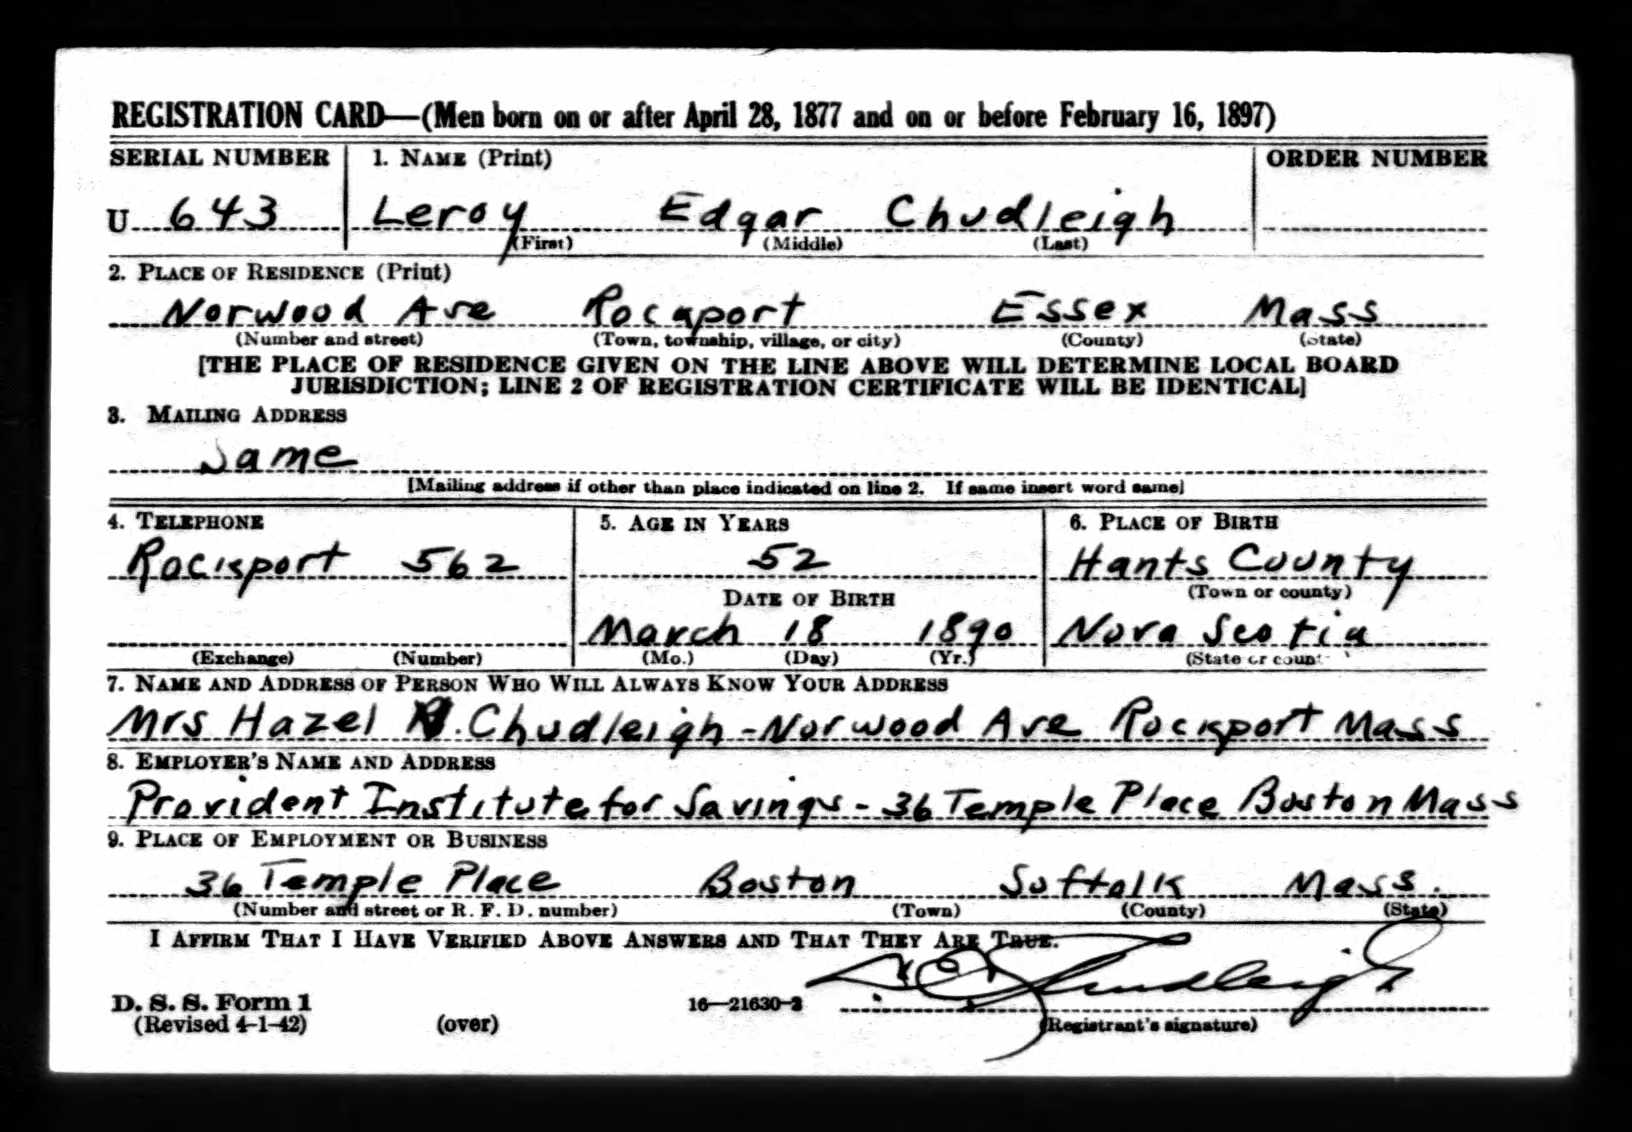 REGISTRATION CARD—(Men born on or after April 28, 1877 and on or before February 16, 1897)
SERIAL NUMBER 1. NAME (Print) ORDER NUMBER
U 643 Leroy Edgar Chudleigh
(First) (Middle) (Last)
2. PLACE OF RESIDENCE (Print)
Norwood Ave Rockport Essex Mass
(Number and street) (Town, township, village, or city) (County) (State)
[THE PLACE OF RESIDENCE GIVEN ON THE LINE ABOVE WILL DETERMINE LOCAL BOARD
JURISDICTION; LINE 2 OF REGISTRATION CERTIFICATE WILL BE IDENTICAL]
3. MAILING ADDRESS
Same
[Mailing address if other than place indicated on line 2. If same insert word same]
4. TELEPHONE 5. AGE IN YEARS 6. PLACE OF BIRTH
Rockport 562 52 Hants County
DATE OF BIRTH (Town or county)
March 18 1890 Nova Scotia
(Exchange) (Number) (Mo.) (Day) (Yr.) (State or
7. NAME AND ADDRESS OF PERSON WHO WILL ALWAYS KNOW YOUR ADDRESS
Mrs Hazel Chudleigh - Norwood Ave Rockport Mass
8. EMPLOYER'S NAME AND ADDRESS
Provident Institute for Savings - 36 Temple Place Boston Mass
9. PLACE OF EMPLOYMENT OR BUSINESS
36 Temple Place Boston Suffolk Mass.
(Number and street or R. F. D. number) (Town) (County) (State)
I AFFIRM THAT I HAVE VERIFIED ABOVE ANSWERS AND THAT THEY ARE TRUE.
Chudleigh
D. S. S. Form 1 16—21630-2
(Revised 4-1-42) (over) (Registrant's signature)